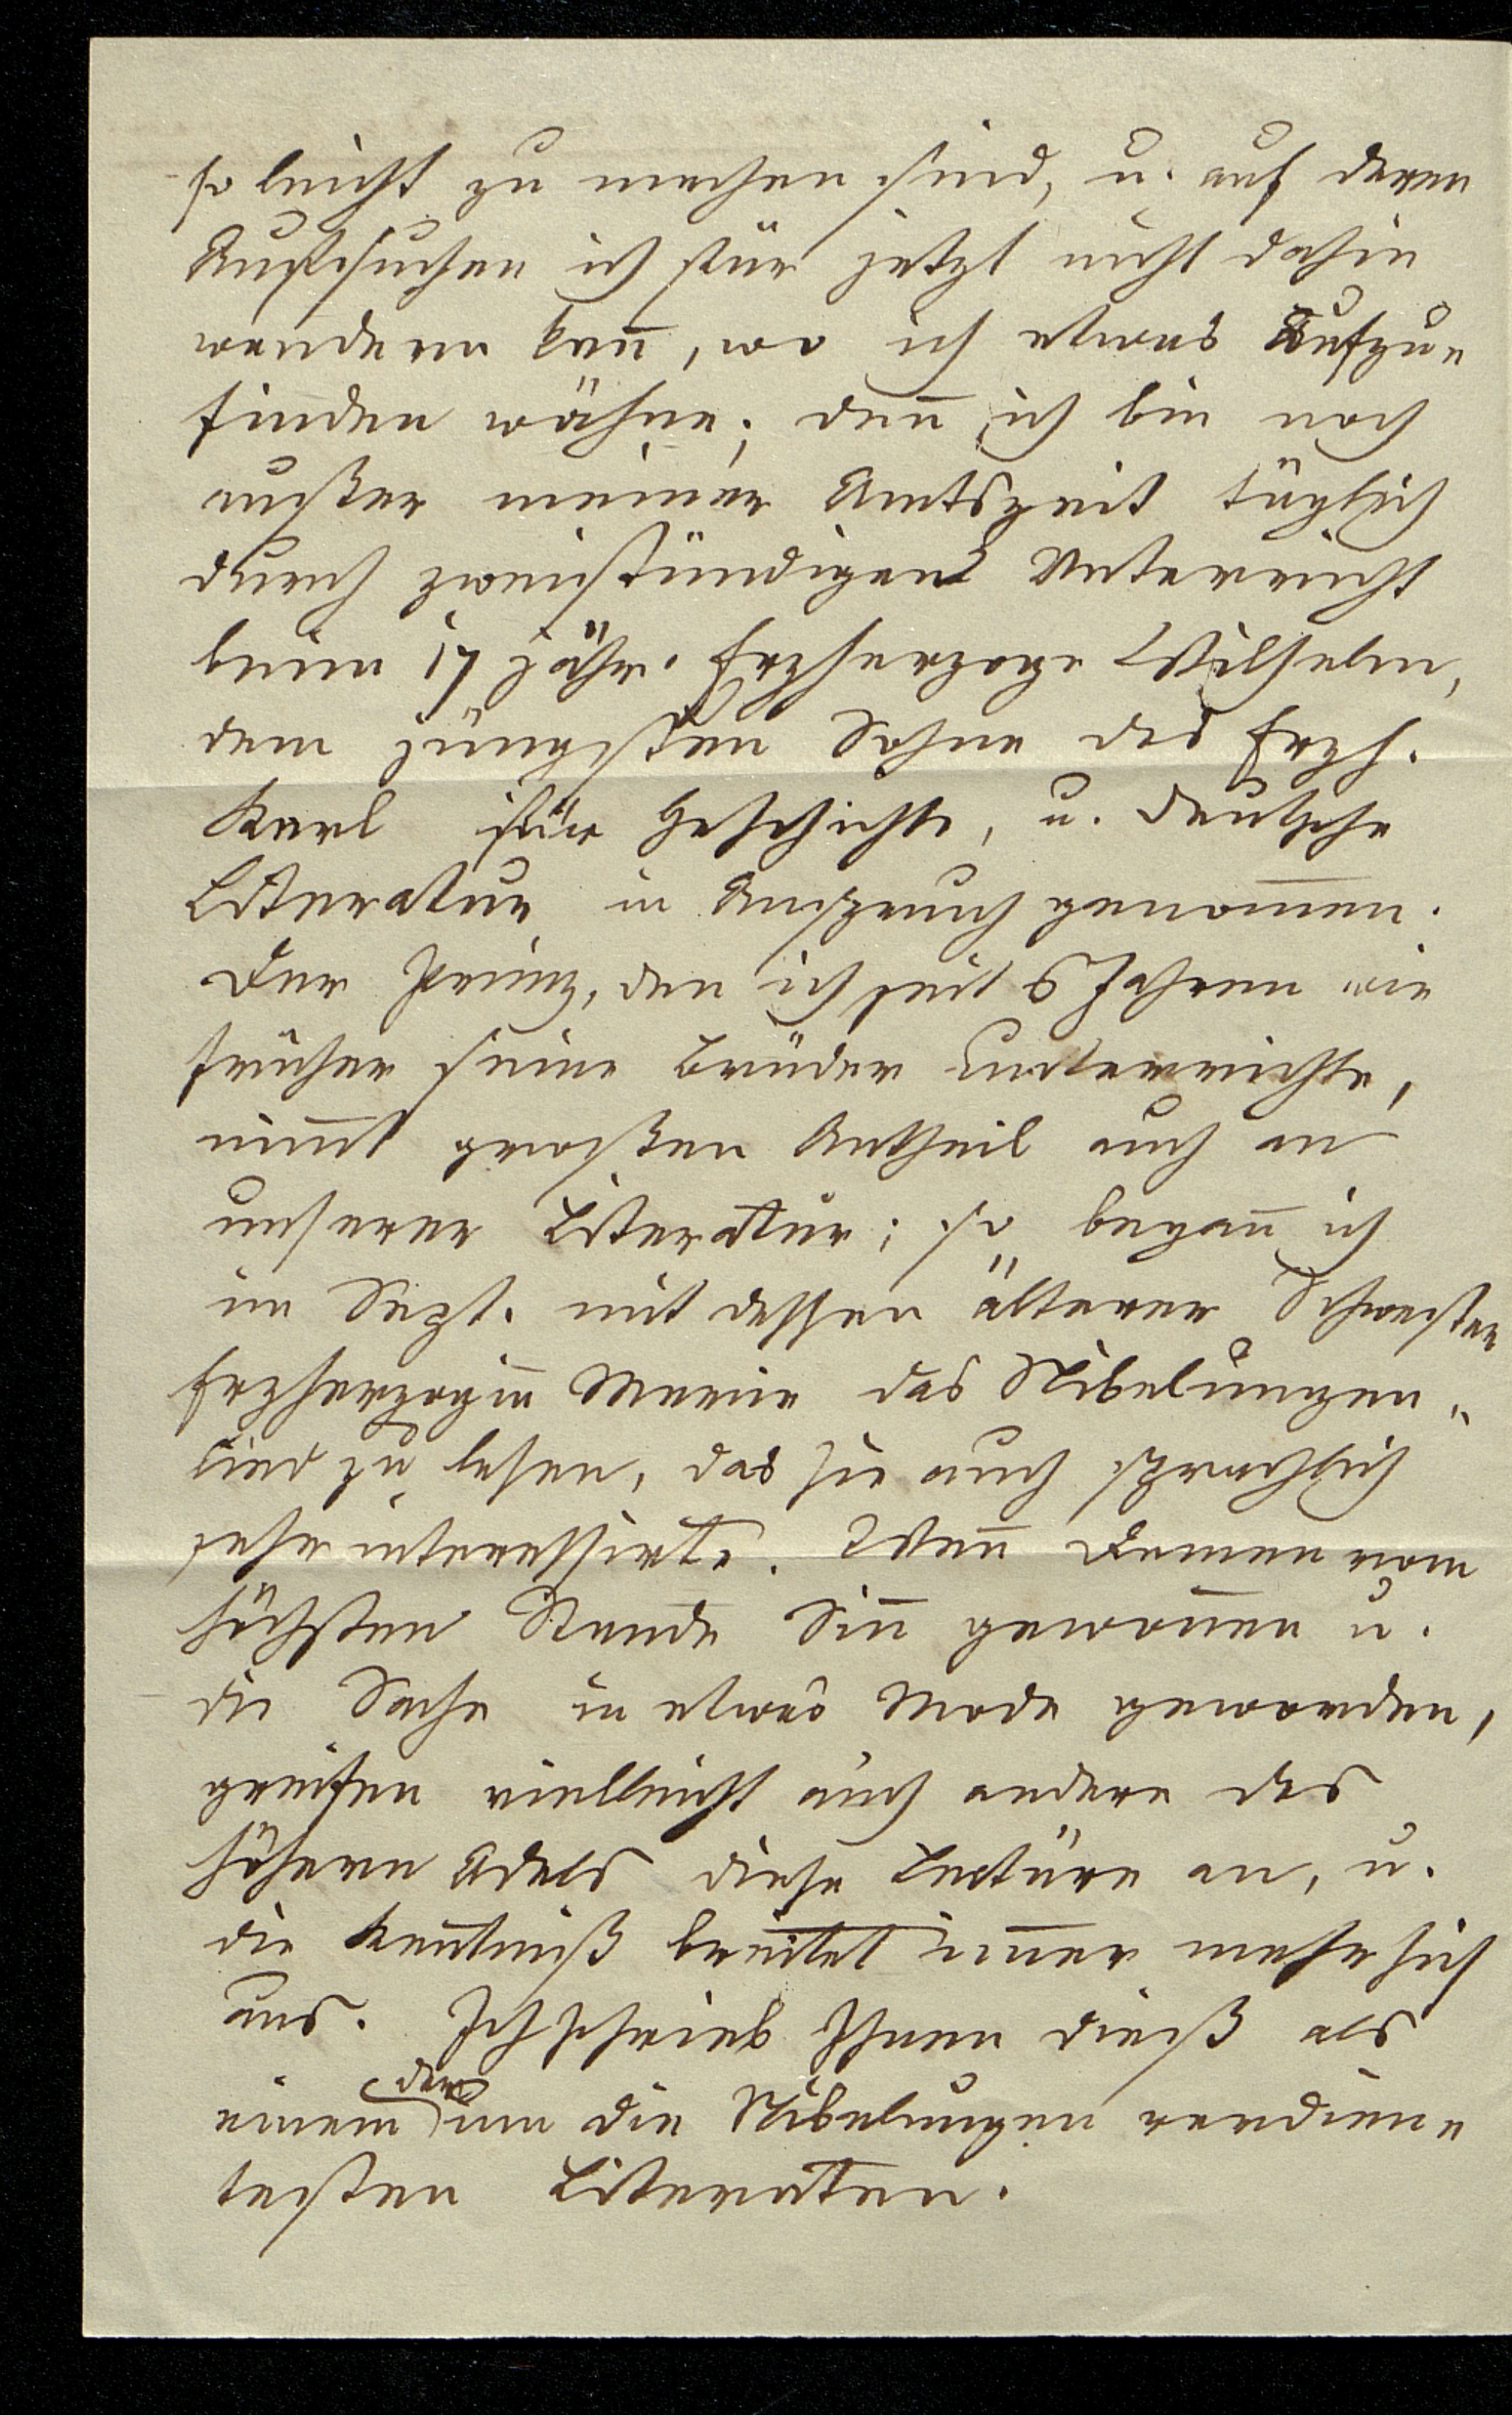 so leicht zu machen sind, u. auf deren
Aufsuchen ich für jetzt nicht dahin
wandern kan̄, wo ich etwas Aufzu„
finden wähne; den̄ ich bin noch
außer meiner Amtszeit täglich
durch zweistündigen Unterricht
beim 17 jähr. Erzherzoge Wilhelm,
dem jüngsten Sohne des Erzh.
Karl für Geschichte, u. deutsche
Literatur in Anspruch genom̄en.
Der Prinz, den ich seit 6 Jahren wie
früher seine Brüder unterrichte,
nim̄t großen Antheil auch an
unserer Literatur; so began̄ ich
im Sept. mit dessen älterer Schwester
Erzherzogin̄ Marie das Nibelungen„
lied zu lesen, das sie auch sprachlich
sehr interessirte. Wen̄ Damen vom
höchsten Stande Sin̄ gewon̄en u.
die Sache in etwas Mode geworden,
greifen vielleicht auch andere des
höhern Adels diese Lectüre an, u.
die Ken̄tniß breitet im̄er mehr sich
aus. Ich schrieb Ihnen dieß als
einem der um die Nibelungen verdien„
testen Literaten.